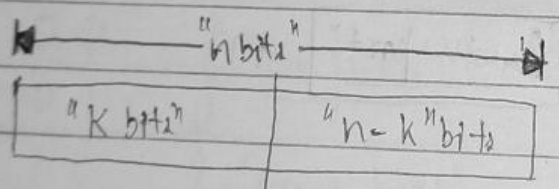 "n bits"
"K bits" "n-k" bits